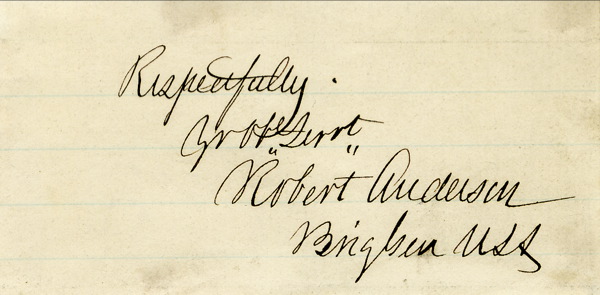 Respectfully.
Yr Obt Servt
Robert Anderson
Brig Gen USA